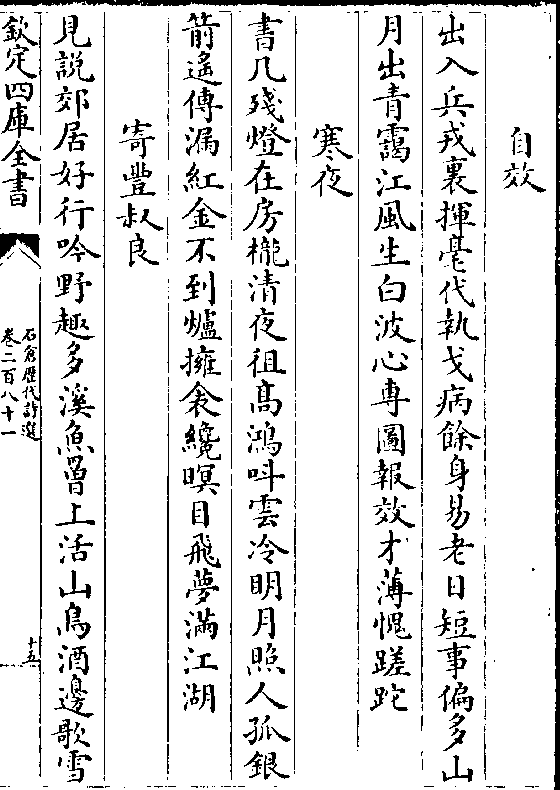 自效
出入兵戎裏揮毫代執戈病餘身易老日短事偏多山
月出青靄江風生白波心專圖報效才薄愧蹉跎
寒夜
書几殘燈在房櫳清夜徂髙鴻呌雲冷明月照人孤銀
箭遙傳漏紅金不到爐擁衾纔暝目飛夢滿江湖
寄豐叔良
見説郊居好行吟野趣多溪魚罾上活山鳥酒邊歌雪
欽定四庫全書
石倉歴代詩選
卷二百八十一
十五